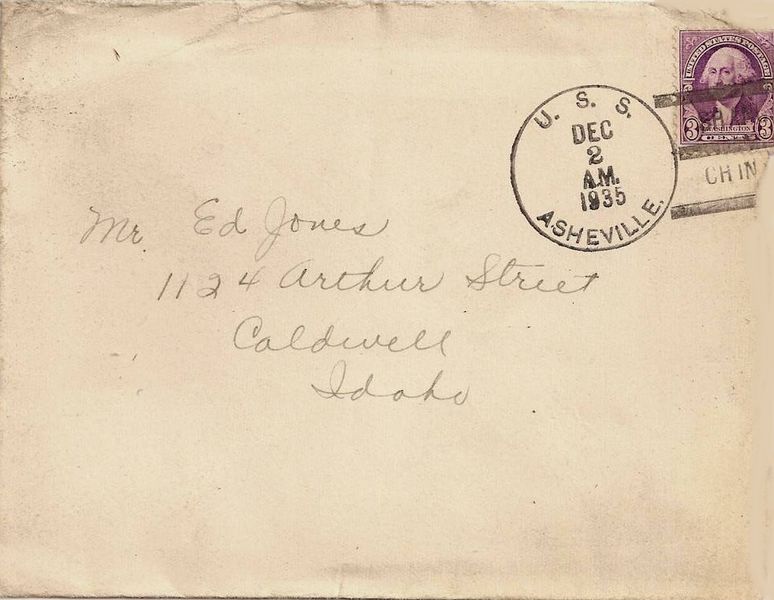 UNITED STATES POSTAGE
3 WASHINGTON 3
CENTS
U. S. S.
DEC
2
A.M.
1935
ASHEVILLE.
CHIN
Mr. Ed Jones
1124 Arthur Street
Caldwell
Idaho